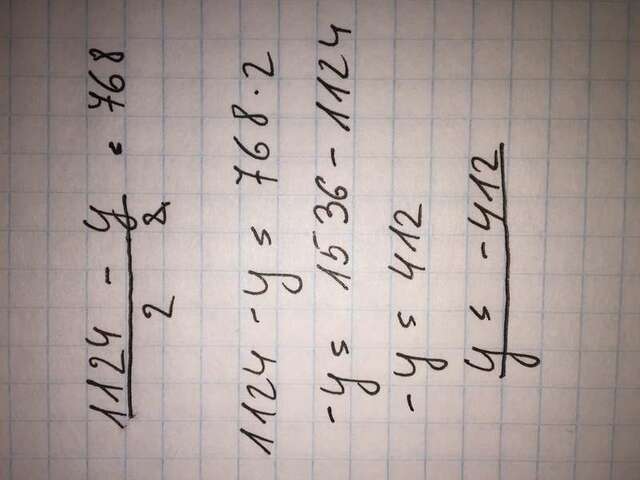 1124 - y = 768
2
1124 - y = 768 · 2
-y = 1536 - 1124
-y = 412
y = -412